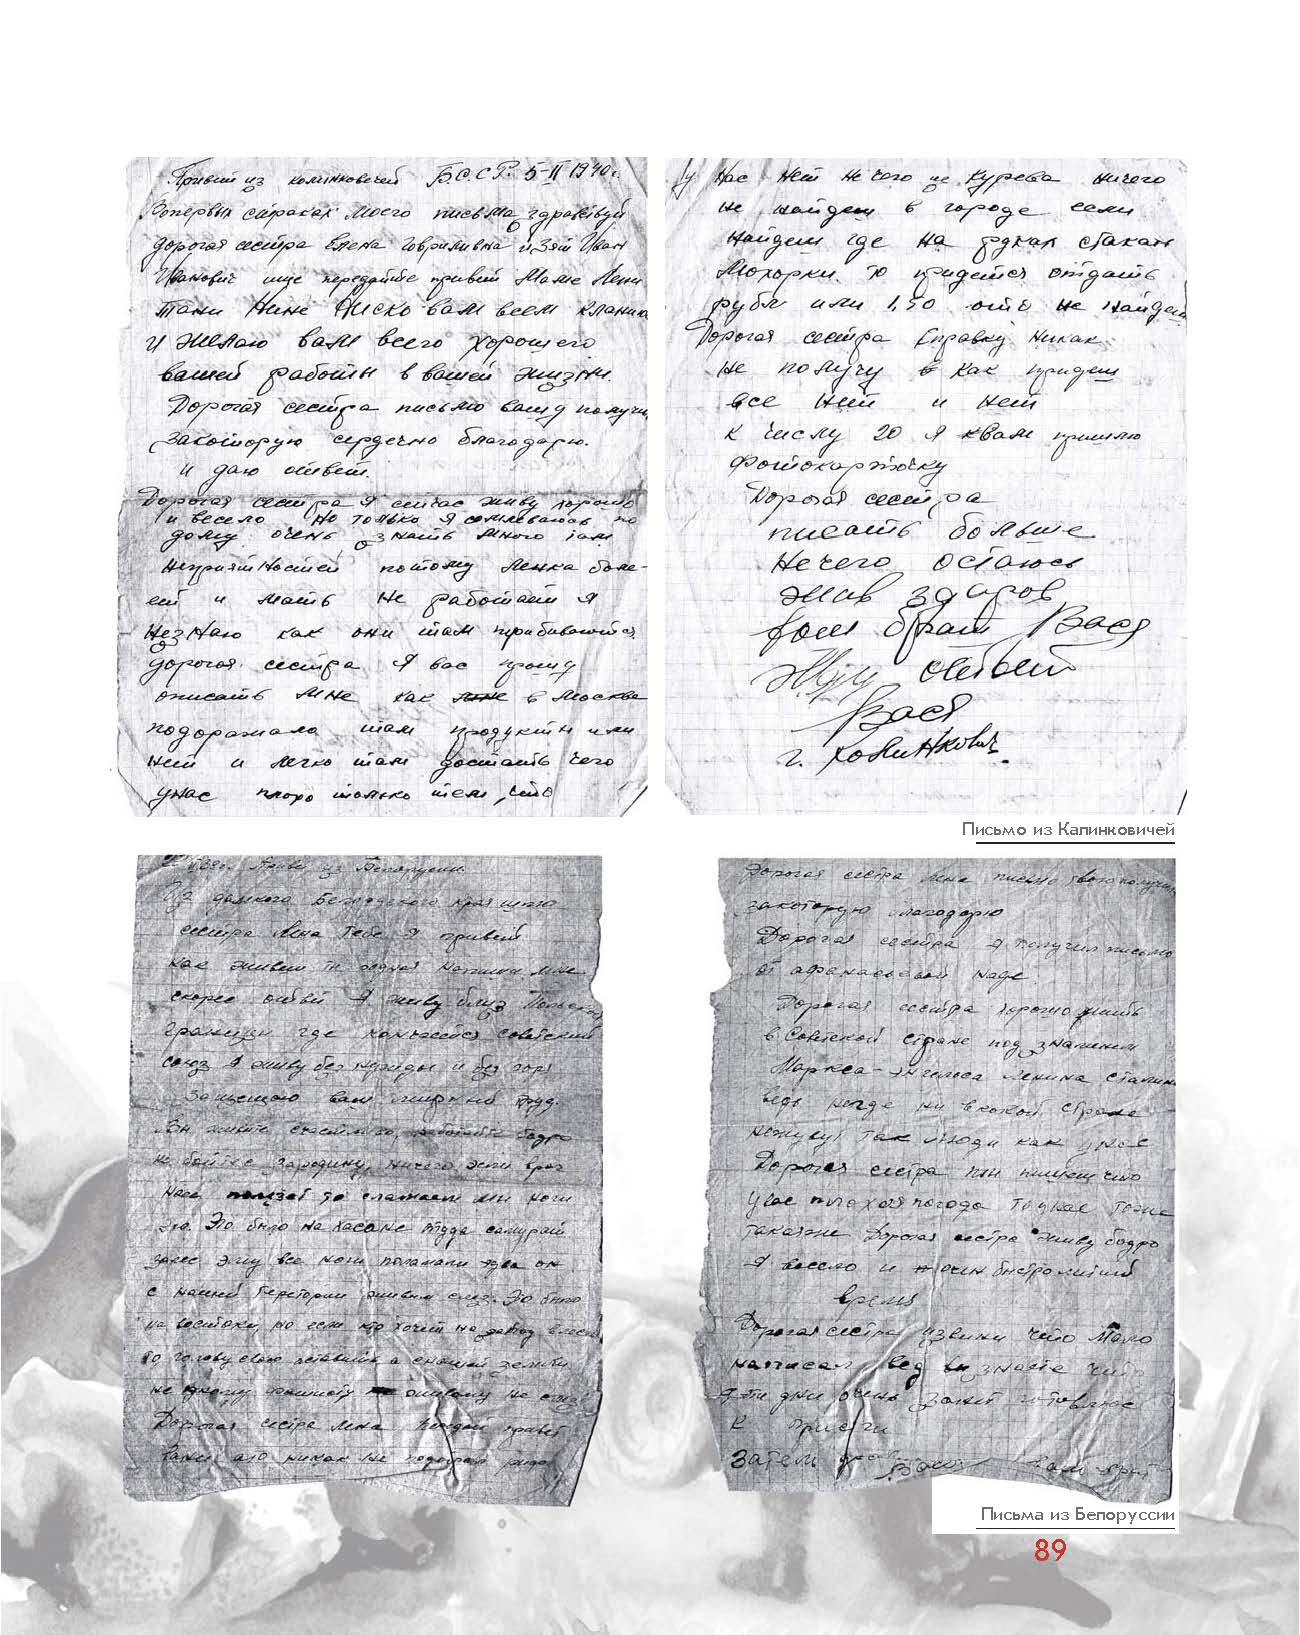 Привет из колинковечей Б.С.С.Р. 5-II 1940 г.
Вопервых страках моего письма здравствуй
дорогая сестра Елена Говриливна и зят Иван
Иванович ище передайте привет Маме Лени
Тани Нине Ниско вам всем кланию
и желаю вам всего хорошего
вашей работы в вашей жизни.
Дорогая сестра письмо вашу получи
закоторую сердечно благодарю.
и даю ответ.
Дорогая сестра я сичас живу хорошо
и весело но только я сомневаюсь по
дому очень знать много там
неприятностей потому Ленка боле-
ет и мать не работает я
незнаю как они там прибиваются
дорогая сестра я вас прошу
описать мне как в Москве
подоражала там продукты или
нет и легко там достать чего
унас плохо только тем, что
у Нас нет не чего не курева ничего
не найдеш в городе если
найдеш где на руках стакан
Махорки то придется отдать
рубл или 1,50 ато не найдеш
Дорогая сестра справку никак
не получу как придеш
все нет и нет
к числу 20 я квам пришлю
фотокарточку
Дорогая сестра
писать больше
нечего остаюсь
жив здаров
ваш брат Вася
Жду ответ
Вася
г. Колинкович.
Письмо из Калинковичей
Привет из Белоруссии.
Из далкого края
сестра Лена тебе я привет
как живеш ты родная напиши мне
скорее ответ я живу близ Польской
границы где кончается советский
союз я живу без нужды и без горя
Защищаю вам мирный труд.
работайте бодро
не бойтес зародину, ничего если враг
то сламаем мы ноги
это. Это было на хасане туда самурай
ему все ноги поламали едва он
с нашей живым слез. Это было
на востоки, но если кто хочит на запад
то голову свою оставит а снашей земли
не живому не
Дорогая сестра Лена передай привет
никак не
Дорогая сестра Лена письмо твою получил
закоторую благодарю
Дорогая сестра я получил письмо
от афанасьевой наде.
Дорогая сестра хорошо жить
в Советской стране под знаменем
Маркса-энгельса Ленина сталина
ведь негде ни вкокой стране
неживут так люди как унас
Дорогая сестра ты пишеш что
увас плохая погода то унас тоже
такаяже Дорогая сестра живу бодро
я весело и очин быстро летит
время
Дорогая сестра извини что мало
написал вед вы знаете что
я эти дни очень занят готовлюс
к присяги
Затем
вам брат
Письма из Белоруссии
89